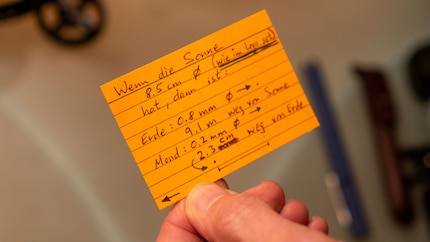 Wenn die Sonne
8,5 cm ø (wie im Logo [...])
hat, dann ist:
Erde: 0.8 mm ø → .
9,1 m weg von Sonne
Mond: 0.2 mm ø → .
(2.3 cm weg von Erde